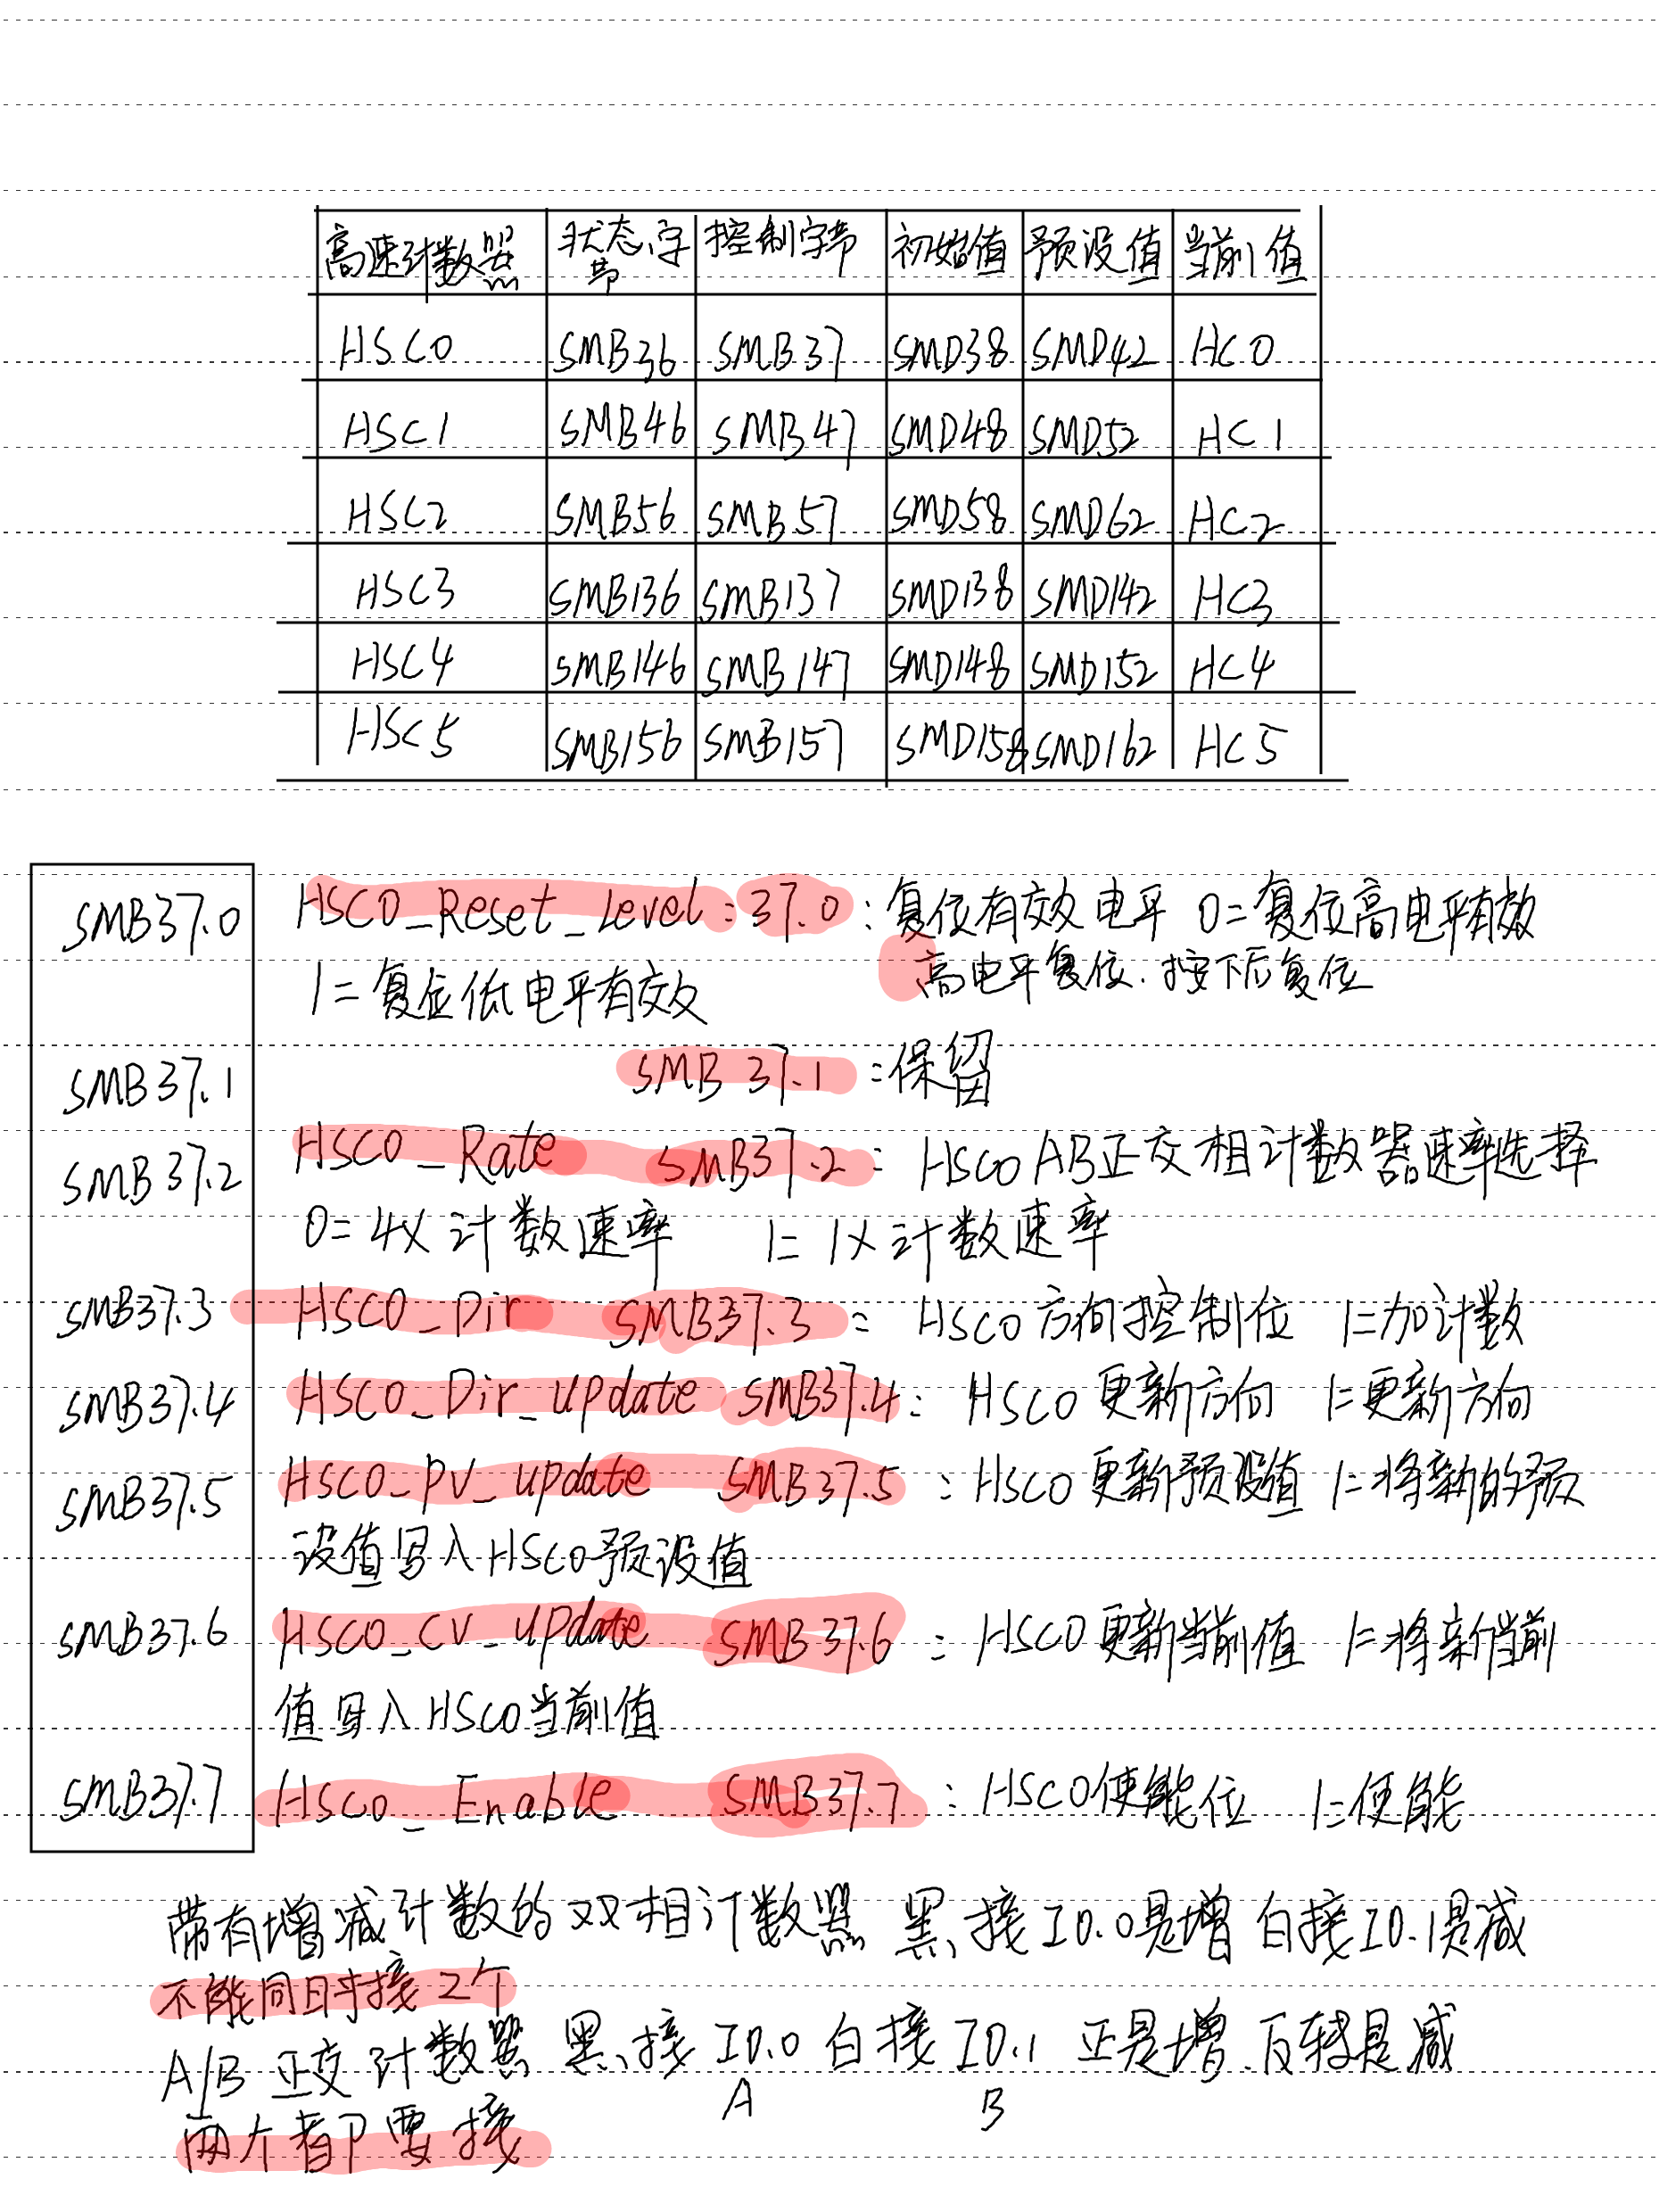 高速计数器 状态字节 控制字节 初始值 预设值 当前值
HSC0 SMB36 SMB37 SMD38 SMD42 HC0
HSC1 SMB46 SMB47 SMD48 SMD52 HC1
HSC2 SMB56 SMB57 SMD58 SMD62 HC2
HSC3 SMB136 SMB137 SMD138 SMD142 HC3
HSC4 SMB146 SMB147 SMD148 SMD152 HC4
HSC5 SMB156 SMB157 SMD158 SMD162 HC5
SMB37.0 HSC0_Reset_Level:37.0:复位有效电平 0=复位高电平有效
1=复位低电平有效 高电平复位.按下后复位
SMB37.1 SMB37.1:保留
SMB37.2 HSC0_Rate SMB37.2: HSC0AB正交相计数器速率选择
0=4X计数速率 1=1X计数速率
SMB37.3 HSC0_Dir SMB37.3: HSC0方向控制位 1=加计数
SMB37.4 HSC0_Dir_update SMB37.4: HSC0更新方向 1=更新方向
SMB37.5 HSC0_PV_update SMB37.5:HSC0更新预设值 1=将新的预
设值写入HSC0预设值
SMB37.6 HSC0_CV_update SMB37.6: HSC0更新当前值 1=将新当前
值写入HSC0当前值
SMB37.7 HSC0_Enable SMB37.7:HSC0使能位 1=使能
带有增减计数的双相计数器 黑接I0.0是增 白接I0.1是减
不能同时接2个
A/B正交计数器 黑接I0.0 白接I0.1 正是增.反转是减
A B
两个都要接